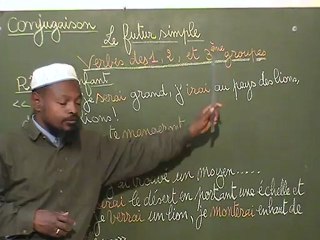 Conjugaison
Le futur simple
Verbes des 1, 2, et 3ème groupes
fant
<< je serai grand, j'irai au pays des lions,
ions!
te
j'ai trouvé un moyen.....
erai le désert en portant une échelle et
je verrai un lion, je monterai en haut de